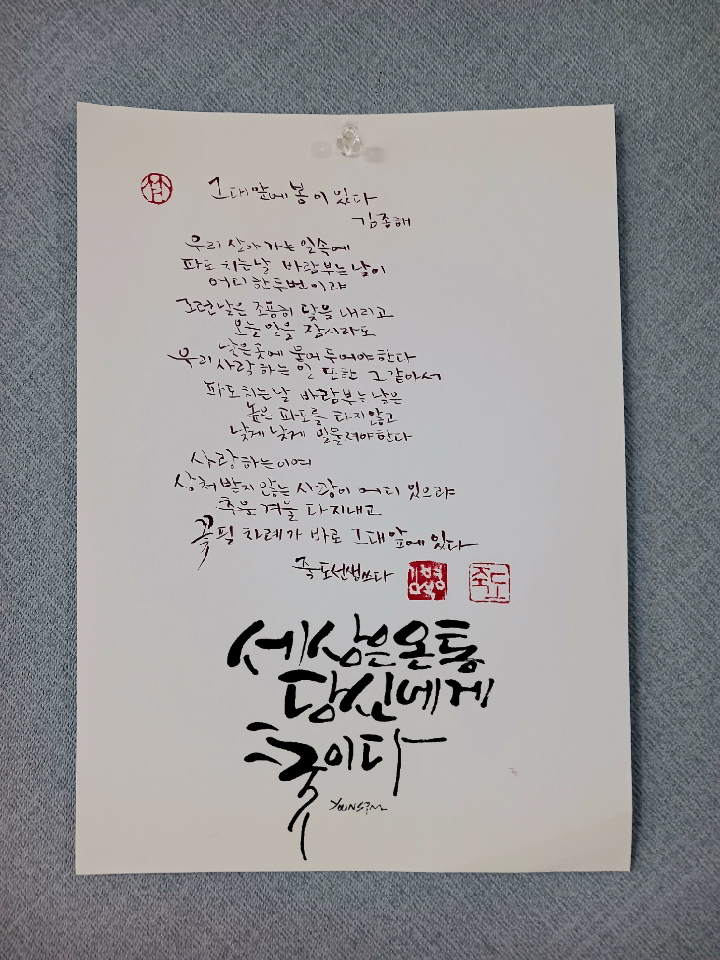 그대 앞에 봄이 있다
김종해
우리 살아가는 일속에
파도 치는날 바람부는날이
어디 한두번이랴
그런날은 조용히 닻을 내리고
오늘 일을 잠시라도
낮은곳에 묻어 두어야한다
우리 사랑하는 일 또한 그 같아서
파도치는날 바람부는 날은
높은 파도를 타지않고
낮게 낮게 밀물져야한다
사랑하는이여
상처받지 않는 사랑이 어디 있으랴
추운 겨울 다 지내고
꽃필 차례가 바로 그대 앞에 있다
죽도선생쓰다
죽도
세상은온통
당신에게
꽃이다